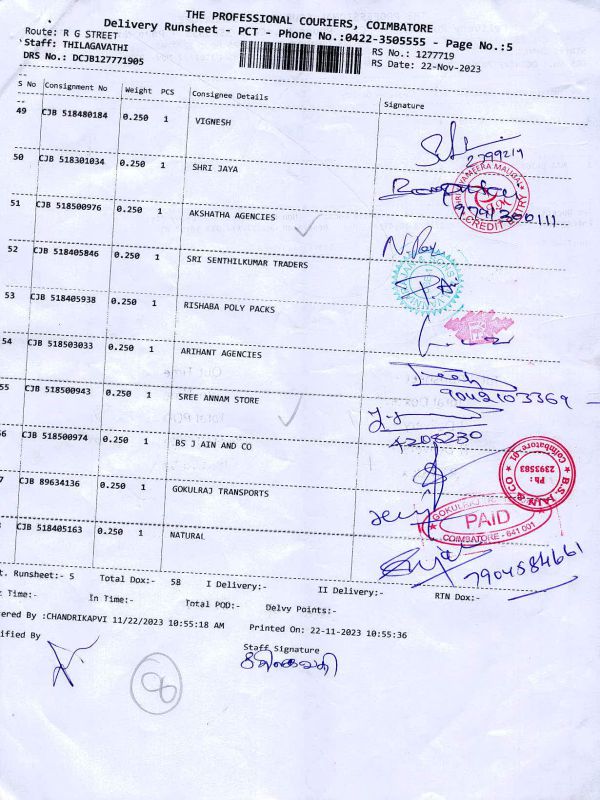 THE PROFESSIONAL COURIERS, COIMBATORE
Delivery Runsheet - PCT - Phone No.:0422-3505555 - Page No.:5
Route: R G STREET
Staff: THILAGAVATHI
DRS No.: DCJB127771905
RS No.: 1277719
RS Date: 22-Nov-2023
S No Consignment No Weight PCS Consignee Details Signature
49 CJB 518480184 0.250 1 VIGNESH
50 CJB 518301034 0.250 1 SHRI JAYA
9791360111
CREDIT ENTRY
51 CJB 518500976 0.250 1 AKSHATHA AGENCIES
52 CJB 518405846 0.250 1 SRI SENTHILKUMAR TRADERS
53 CJB 518405938 0.250 1 RISHABA POLY PACKS
54 CJB 518503033 0.250 1 ARIHANT AGENCIES
9042103369
55 CJB 518500943 0.250 1 SREE ANNAM STORE
4208230
56 CJB 518500974 0.250 1 BS J AIN AND CO
B.S. JAIN & CO
Ph :
2393583
Coimbatore-01
7 CJB 89634136 0.250 1 GOKULRAJ TRANSPORTS
GOKULRAJ
PAID
COIMBATORE - 641 001
CJB 518405163 0.250 1 NATURAL
7904584661
t. Runsheet:- 5 Total Dox:- 58 I Delivery:- II Delivery:- RTN Dox:-
t Time:- In Time:- Total POD:- Delvy Points:-
ered By :CHANDRIKAPVI 11/22/2023 10:55:18 AM Printed On: 22-11-2023 10:55:36
ified By
Staff Signature